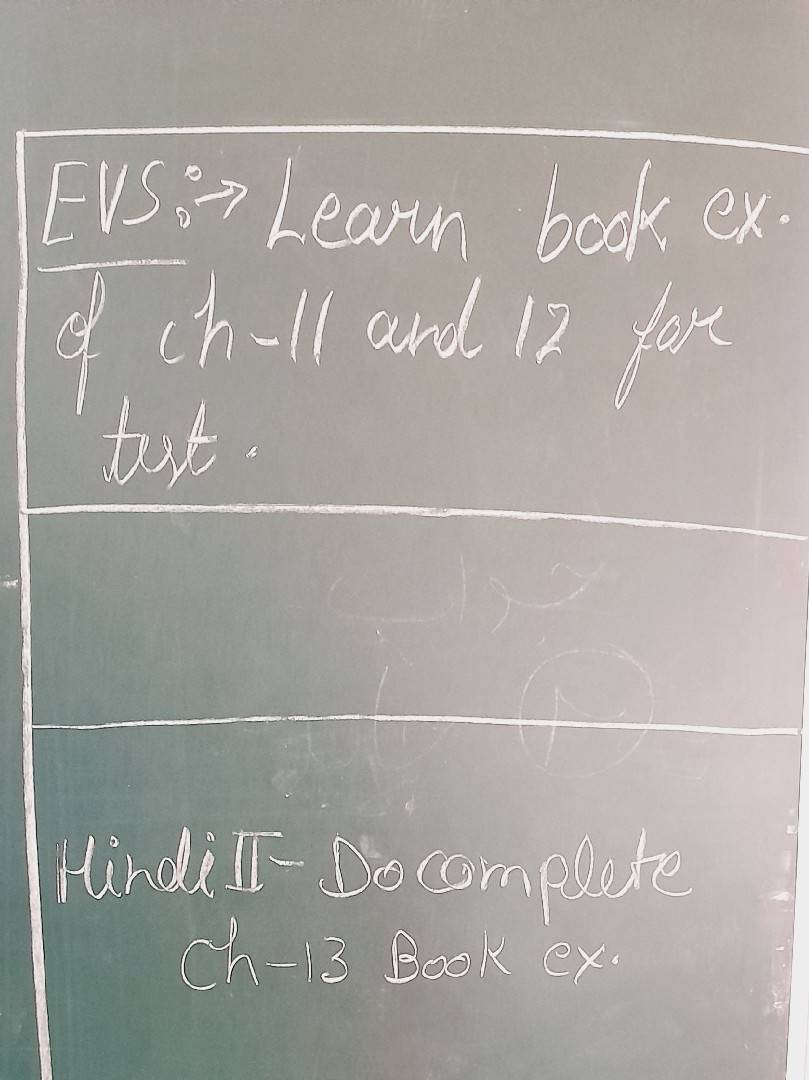 EVS:→ Learn book ex.
of ch-11 and 12 for
test.
Hindi II- Do complete
Ch-13 Book ex.